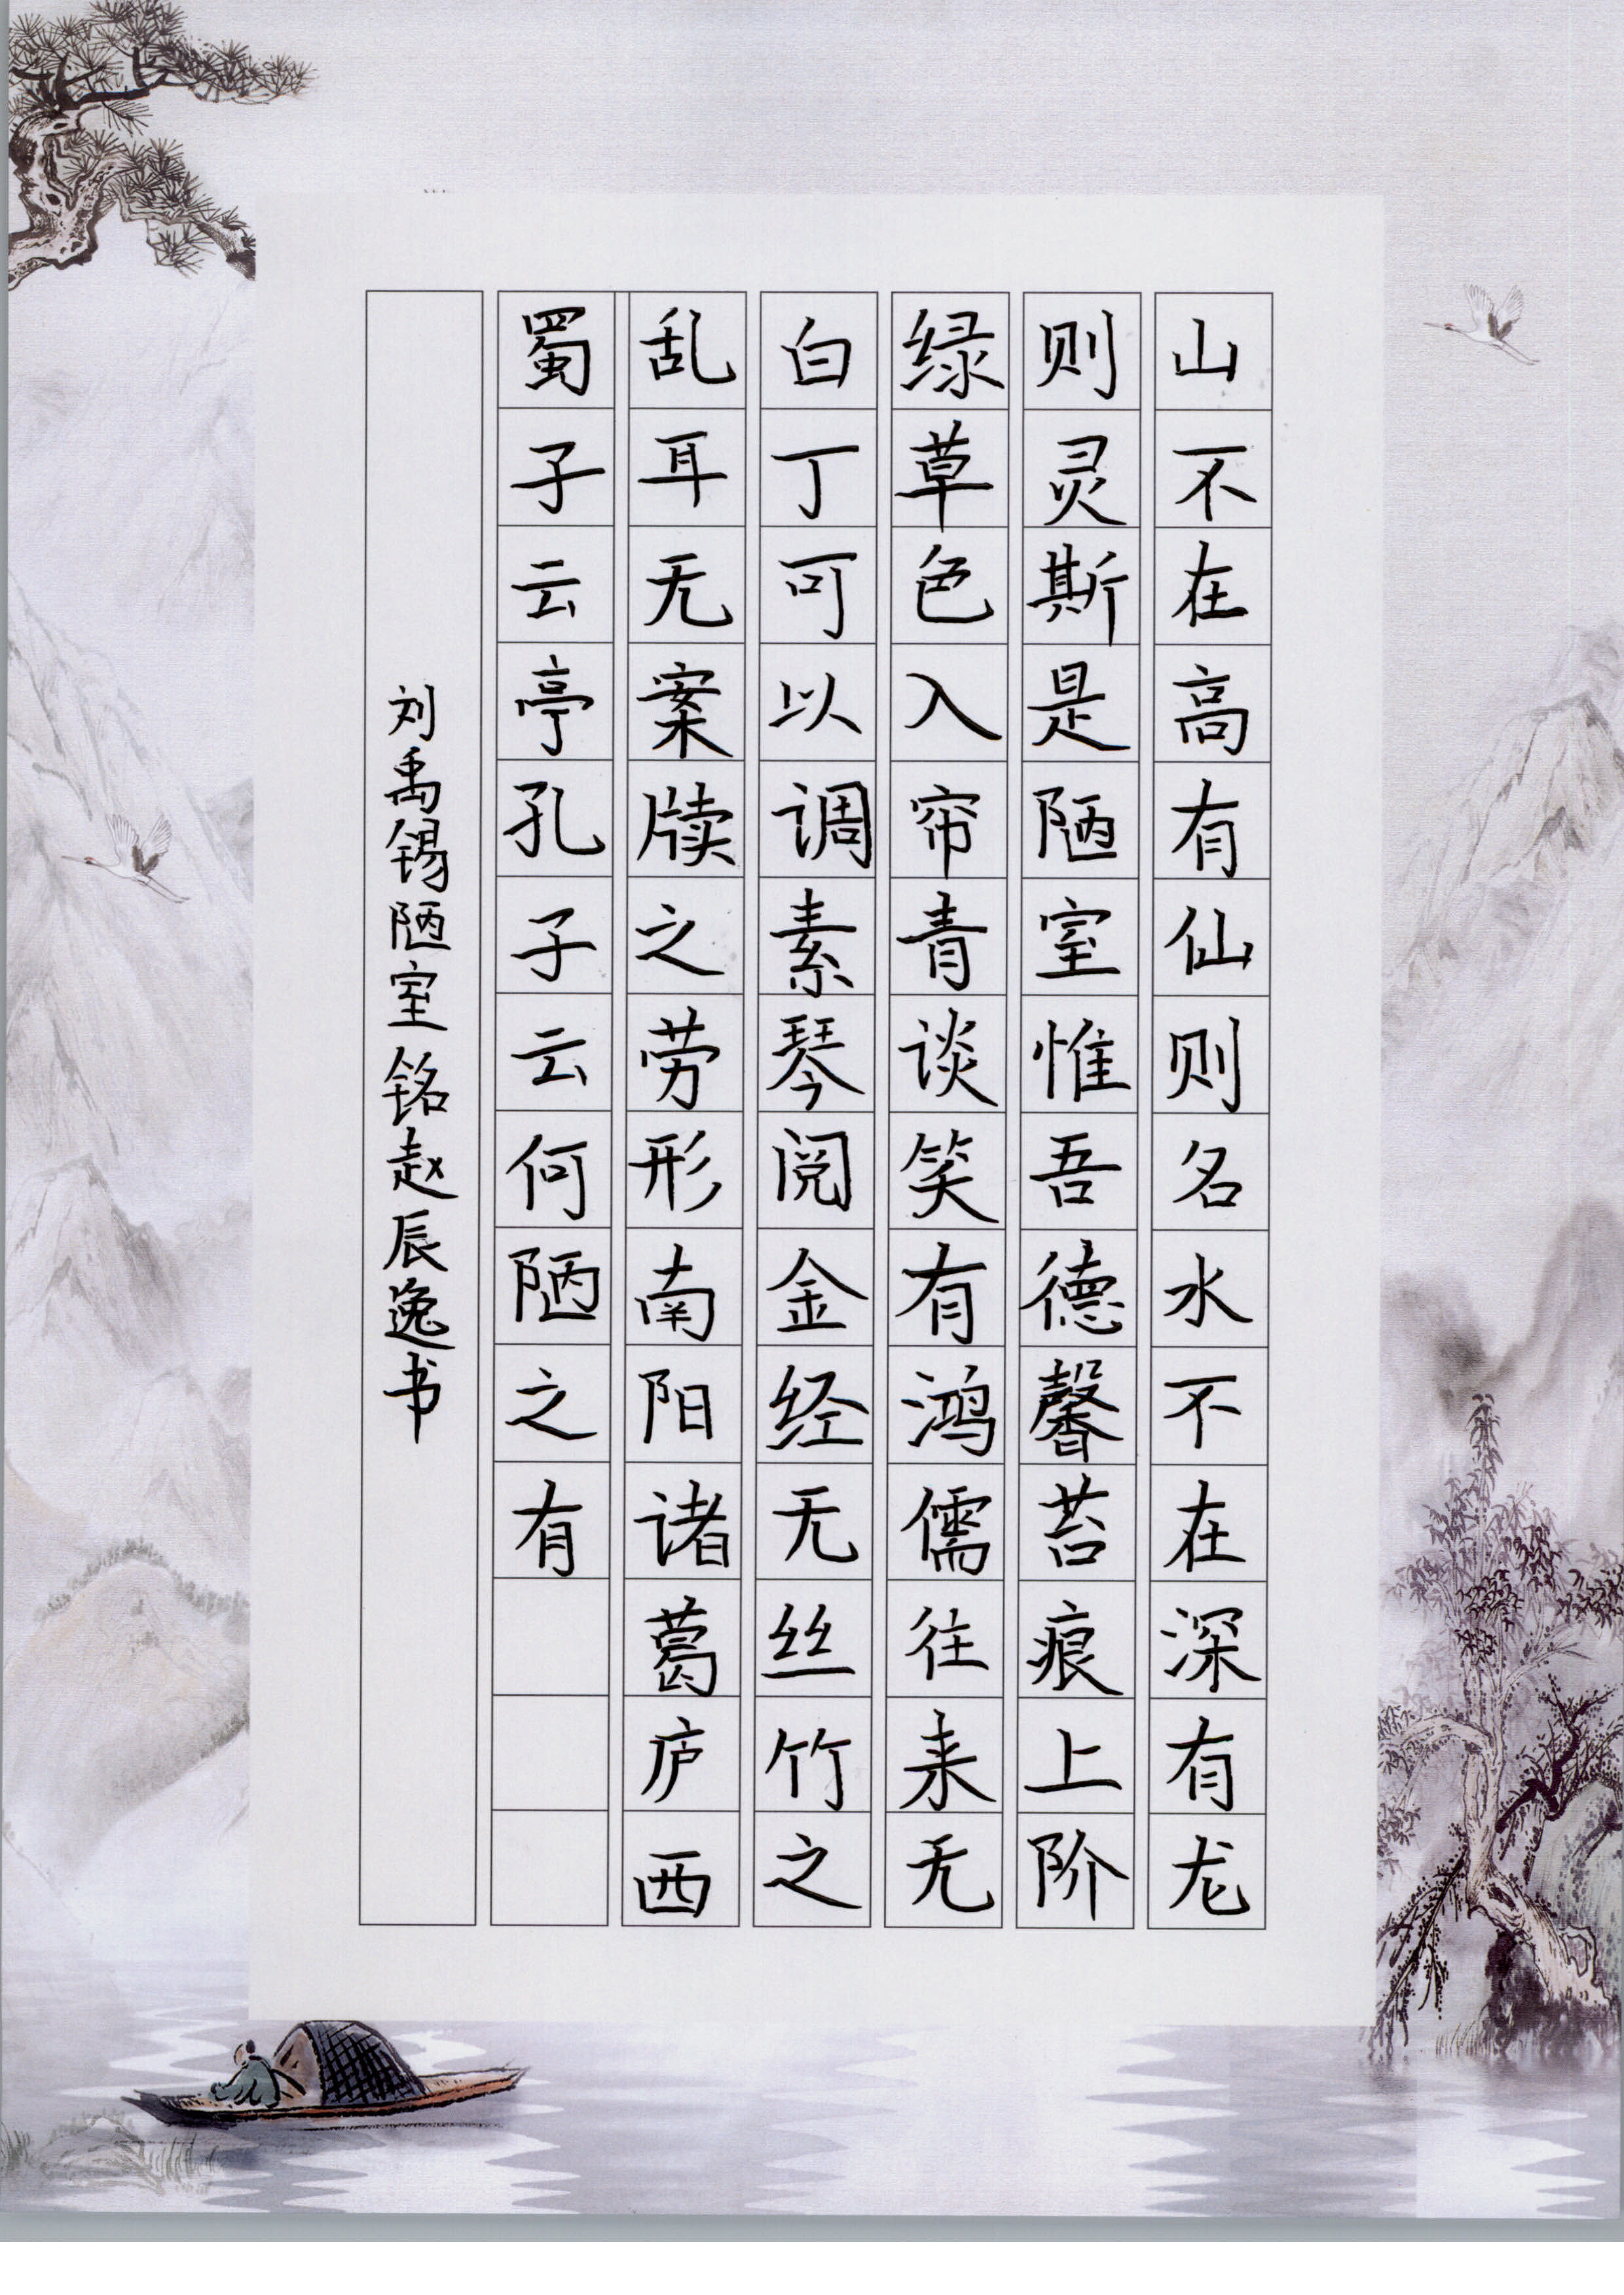 山不在高有仙则名水不在深有龙
则灵斯是陋室惟吾德馨苔痕上阶
绿草色入帘青谈笑有鸿儒往来无
白丁可以调素琴阅金经无丝竹之
乱耳无案牍之劳形南阳诸葛庐西
蜀子云亭孔子云何陋之有
刘禹锡陋室铭赵辰逸书